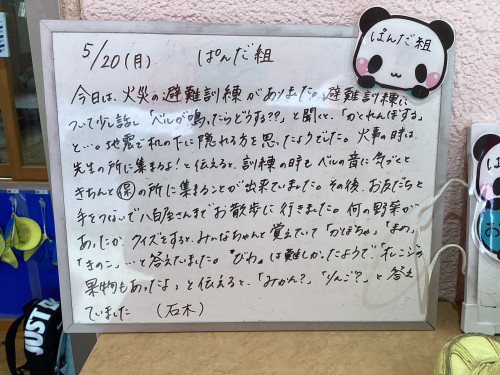 5/20(月) ぱんだ組
ぱんだ組
今日は、火災の避難訓練がありました。避難訓練に
ついて少し話し「ベルが鳴ったらどうする??」と聞くと、「かくれんぼする」
と…。地震で机の下に隠れる方を思ったようでした。火事の時は、
先生の所に集まるよ!と伝えると、訓練の時も ベルの音に気づくと
きちんと㋭の所に集まることが出来ていました。その後、お友だちと
手をつないで八百屋さんまでお散歩に行きました。何の野菜が
あったか クイズをすると、みんなちゃんと覚えていて「かぼちゃ」「まめ」
「きのこ」…と答えていました。"びわ"は難しかったようで"オレンジの
果物もあったよ"と伝えると、「みかん?」「りんご?」と答え
ていました (石木)
JUST DO
お